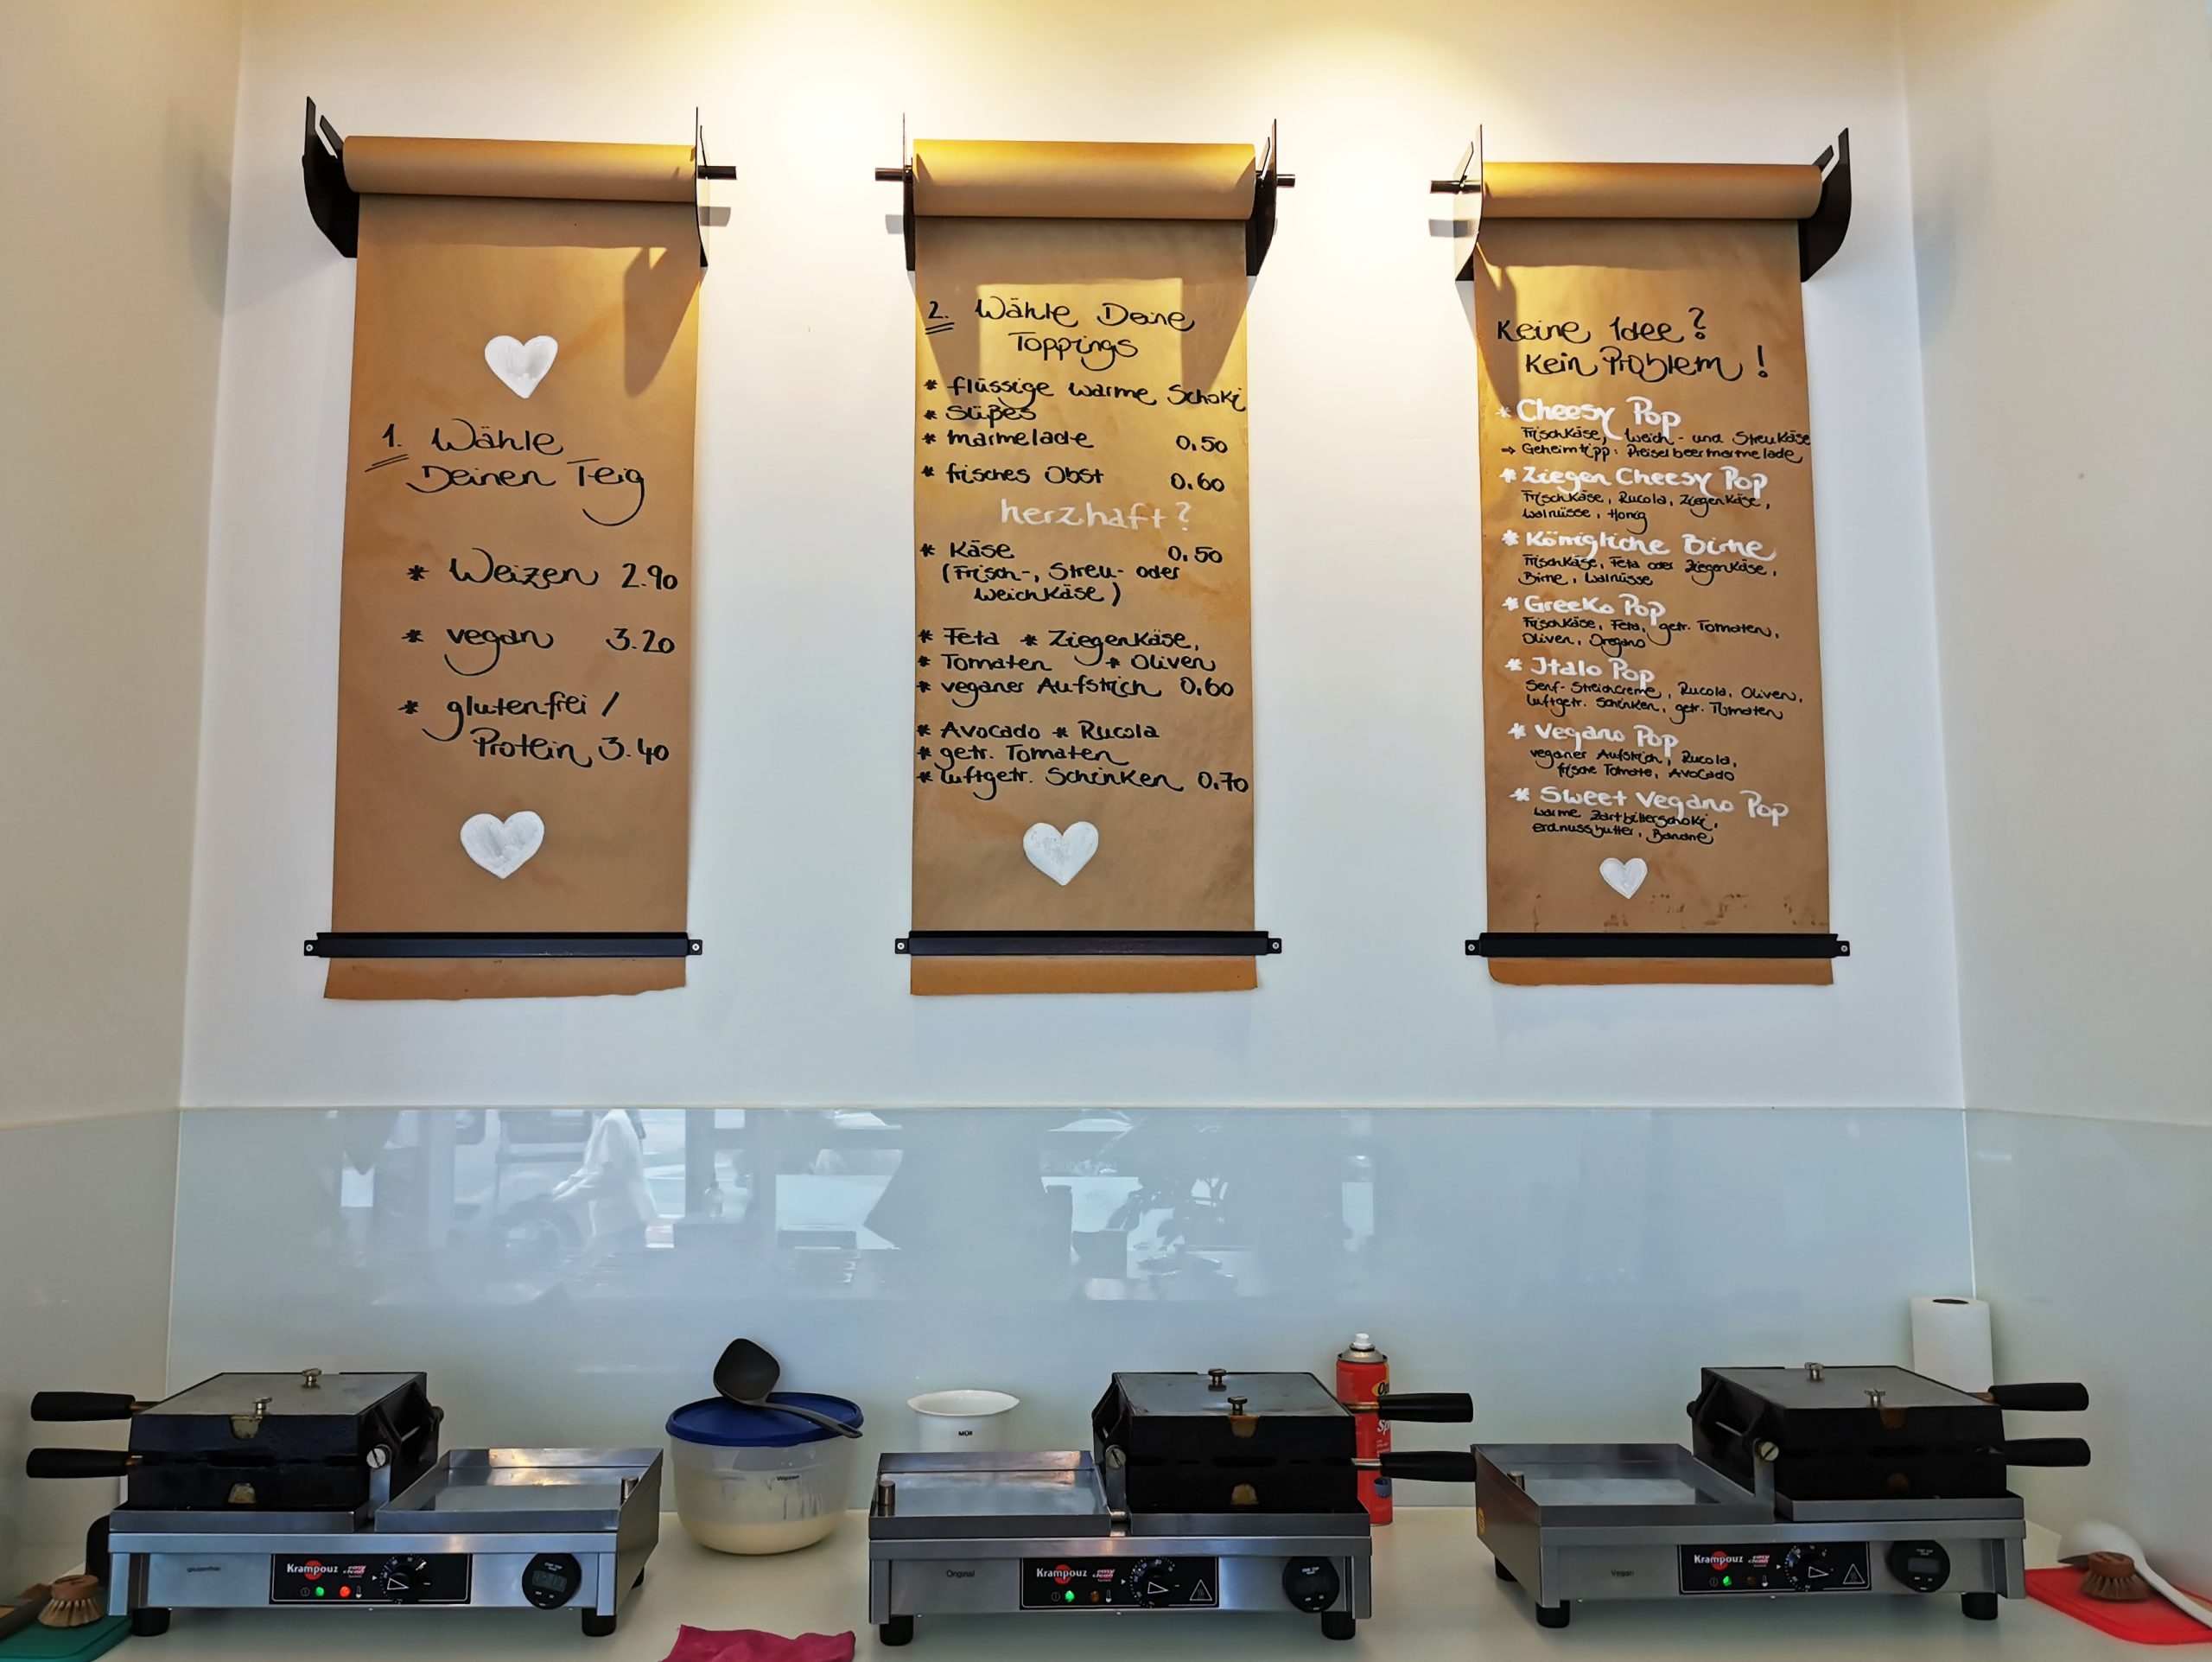 1. Wähle
Deinen Teig
* Weizen 2.90
* vegan 3.20
* glutenfrei /
Protein 3.40
2. Wähle Deine
Toppings
* flüssige warme Schoki
* Süßes
* Marmelade 0,50
* frisches Obst 0.60
herzhaft?
* Käse 0,50
(Frisch-, Streu- oder
Weichkäse)
* Feta * Ziegenkäse,
* Tomaten * Oliven
* veganer Aufstrich 0,60
* Avocado * Rucola
* getr. Tomaten
* luftgetr. Schinken 0,70
Keine Idee?
Kein Problem!
* Cheesy Pop
Frischkäse, Weich- und Streukäse
⇒ Geheimtipp: Preiselbeermarmelade
* Ziegen Cheesy Pop
Frischkäse, Rucola, Ziegenkäse,
Walnüsse, Honig
* Königliche Birne
Frischkäse, Feta oder Ziegenkäse,
Birne, Walnüsse
* Greeko Pop
Frischkäse, Feta, getr. Tomaten,
Oliven, Oregano
* Italo Pop
Senf-Streichcreme, Rucola, Oliven,
luftgetr. Schinken, getr. Tomaten
* Vegano Pop
veganer Aufstrich, Rucola,
frische Tomate, Avocado
* Sweet Vegano Pop
warme Zartbitterschoki,
Erdnussbutter, Banane
Weizen
glutenfrei
Krampouz easy clean
Original
Krampouz easy clean
Vegan
Krampouz easy clean